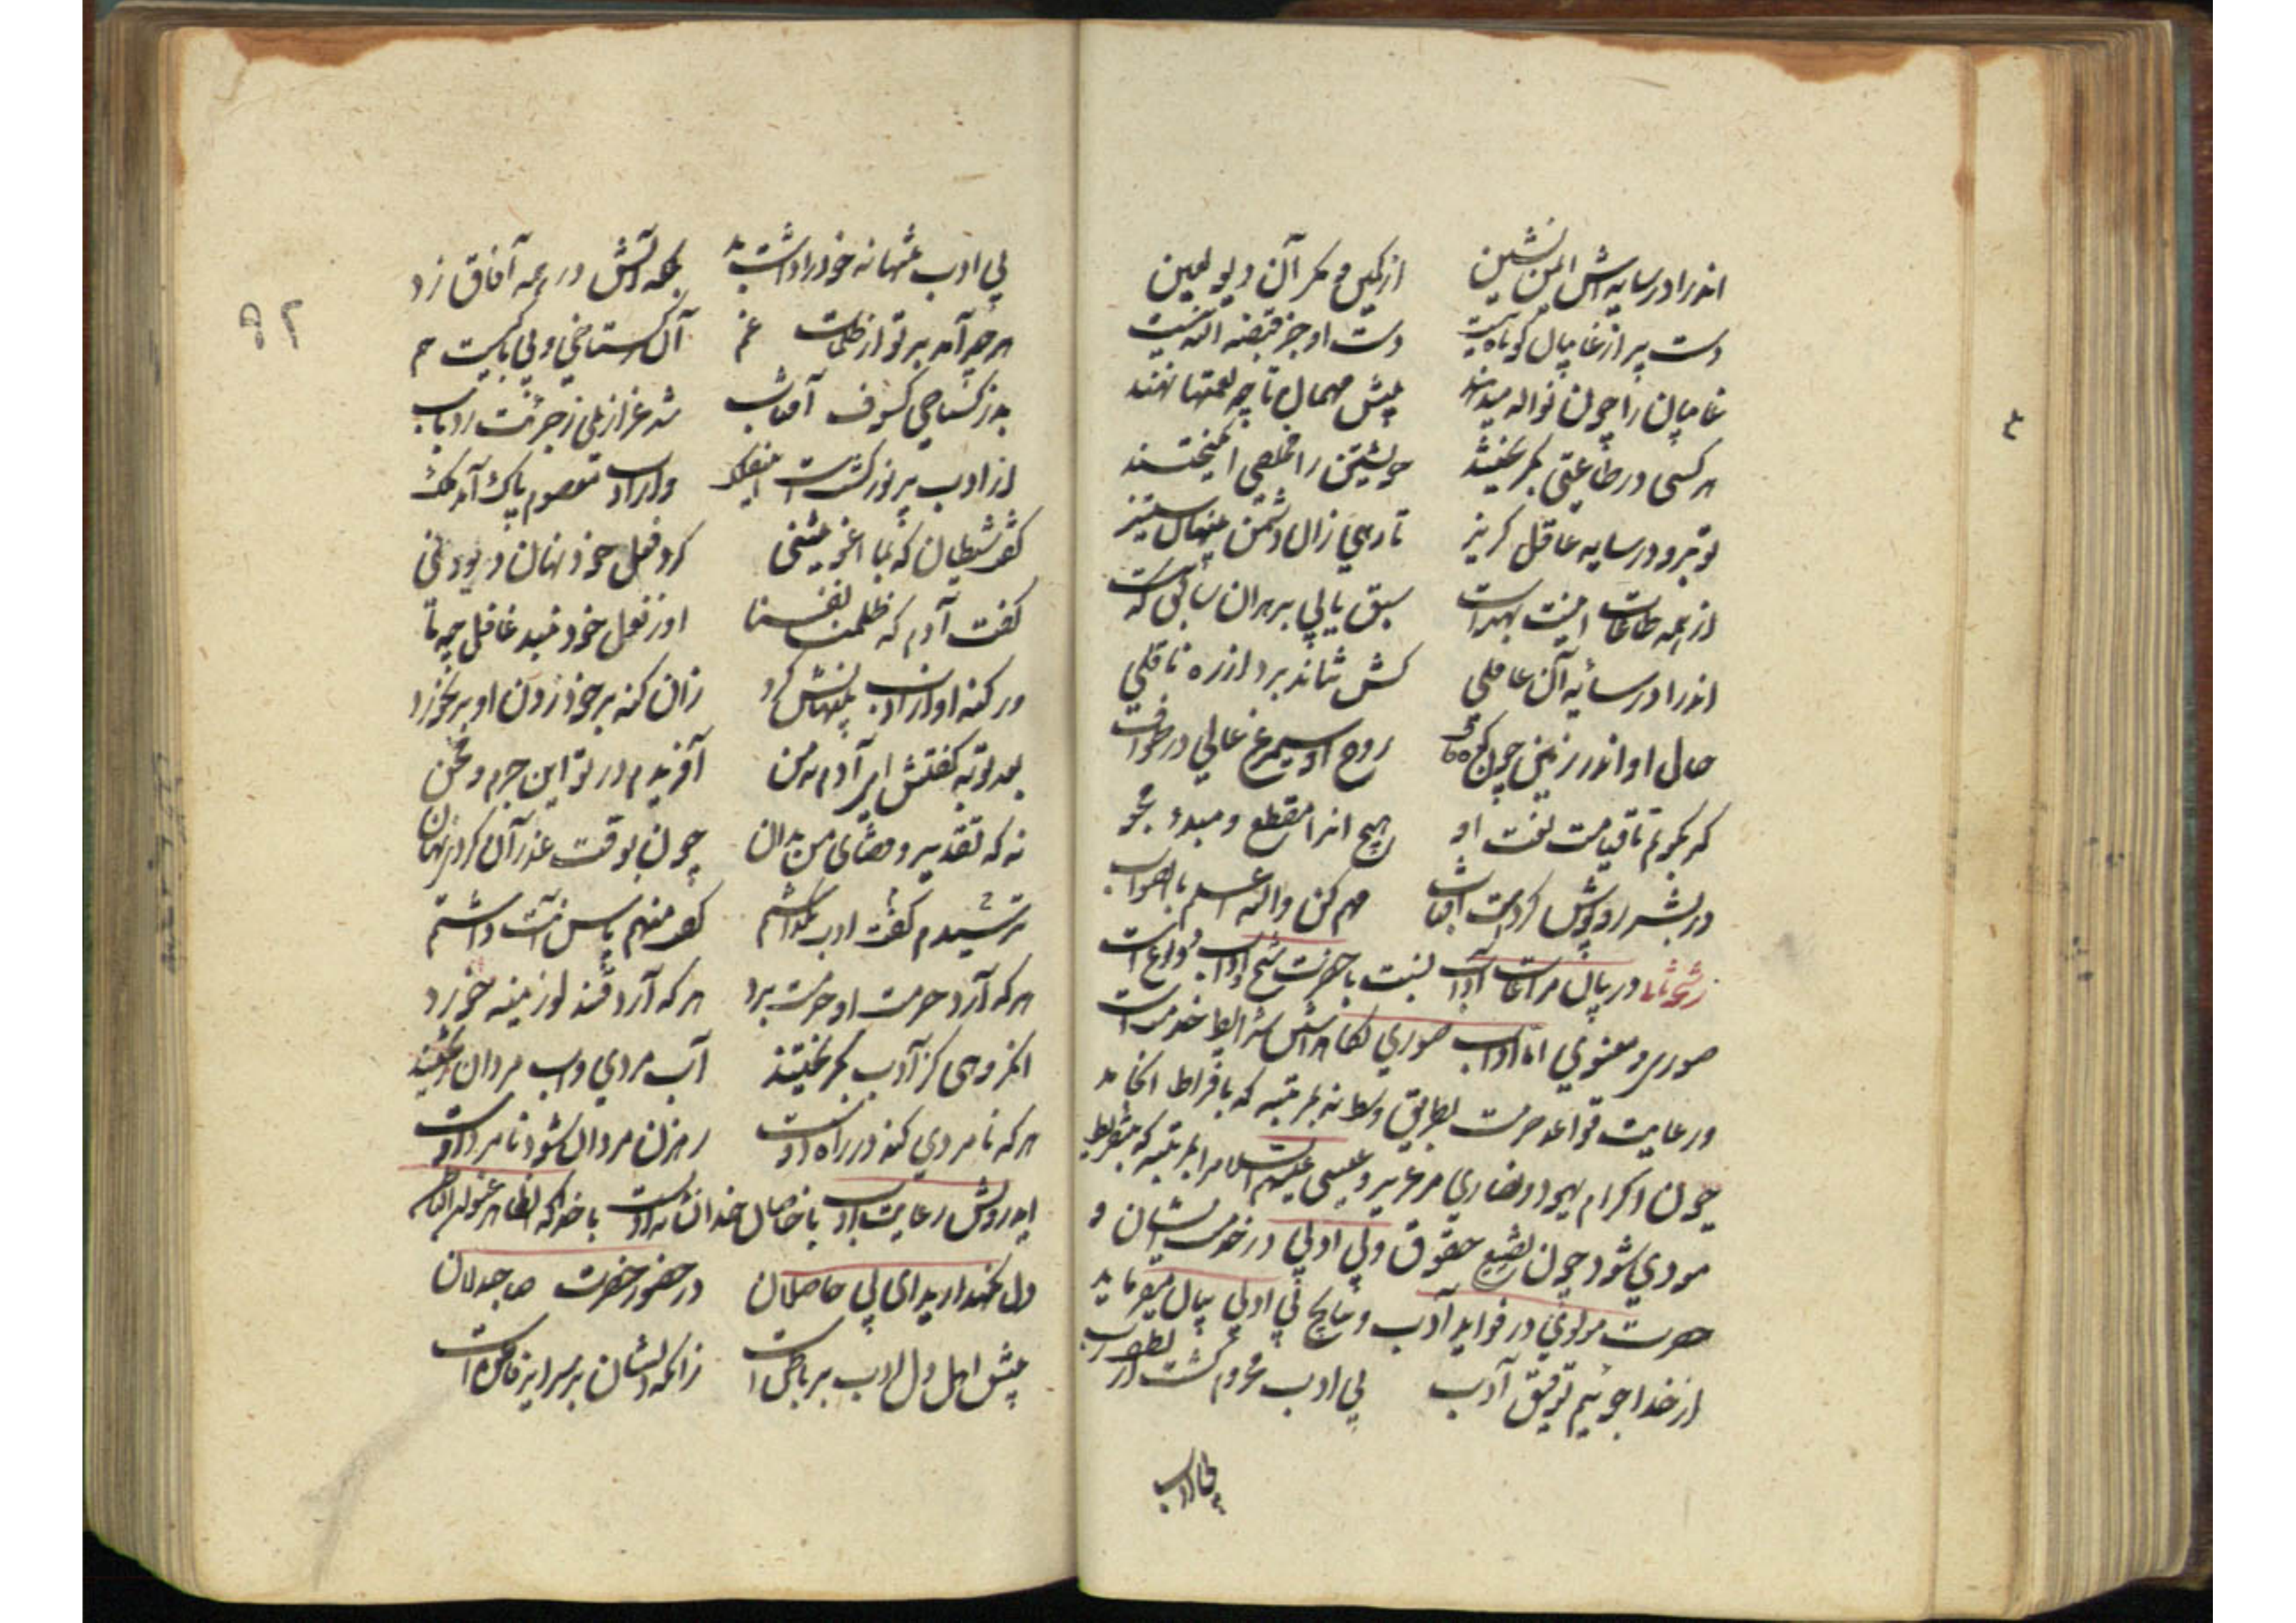 اندرا در سایه‌اش ایمن نشین از کمین و مکر آن دیو لعین
دست پیر از غایبان کوتاه نیست دست او جز قبضه الله نیست
غایبان را چون نواله میدهند پیش مهمان تا چه نعمتها نهند
هر کسی در طاعتی بگریختند خویشتن را مخلصی انگیختند
تو برو در سایه عاقل گریز تا رهی زان دشمن پنهان ستیز
از همه طاعات اینت بهترست سبق یابی بر هر آن سابق که
اندرا در سایه آن عاقلی کش نتاند برد از ره ناقلی
حال او اندر زمین چون کوه قاف روح او سیمرغ عالی در طواف
گر بگویم تا قیامت نعت او هیچ انرا مقطع و مبدء مجو
در بشر روپوش کردست آفتاب فهم کن والله اعلم بالصواب
رشحه در بیان مراعات آداب نسبت با حضرت شیخ و آداب دو نوع است
صوری و معنوی اما آداب صوری شرایط خدمت است
و رعایت قواعد حرمت بطریق وسط نه بمرتبه که بافراط انجامد
چون اکرام یهود و نصاری مر عزیر و عیسی علیهم السلام را نه بمرتبه که بتفریط
مودی شود چون تضییع حقوق و بی ادبی در خدمت ایشان و
حضرت مولوی در فواید آداب و نتایج بی ادبی بیان میفرماید
از خدا جوئیم توفیق ادب بی ادب محروم گشت از لطف رب
بی ادب
٩٢
بی ادب تنها نه خود را داشت بد بلکه آتش در همه آفاق زد
هر چه آمد بر تو از ظلمات غم آن گستاخی و بی باکیست هم
بد ز گستاخی کسوف آفتاب شد عزازیلی ز جرئت رد باب
از ادب پر نور گشتست این فلک وز ادب معصوم پاک آمد ملک
گفت شیطان که بما اغویتنی کرد فعل خود نهان دیو دنی
گفت آدم که ظلمنا نفسنا او ز فعل حق نبد غافل چو ما
در گنه او از ادب پنهانش کرد زان گنه بر خود زدن او بر بخورد
بعد توبه گفتش ای آدم نه من آفریدم در تو این جرم و محن
نه که تقدیر و قضای من بد آن چون بوقت عذر آن کردی نهان
ترسیدم گفت ادب نگذاشتم گفت منهم پاس آنت داشتم
هر که آرد حرمت او حرمت برد هر که آرد قند لوزینه خورد
انگروهی کز ادب بگریختند آب مردی و آب مردان ریختند
هر که نامردی کند در راه دوست رهزن مردان شود نامرد اوست
ای درویش رعایت ادب با خاصان خدا
دل نگهدارید ای بی حاصلان در حضور حضرت صاحبدلان
پیش اهل دل ادب بر باطن است زانکه دلشان بر سرایر فاطن است